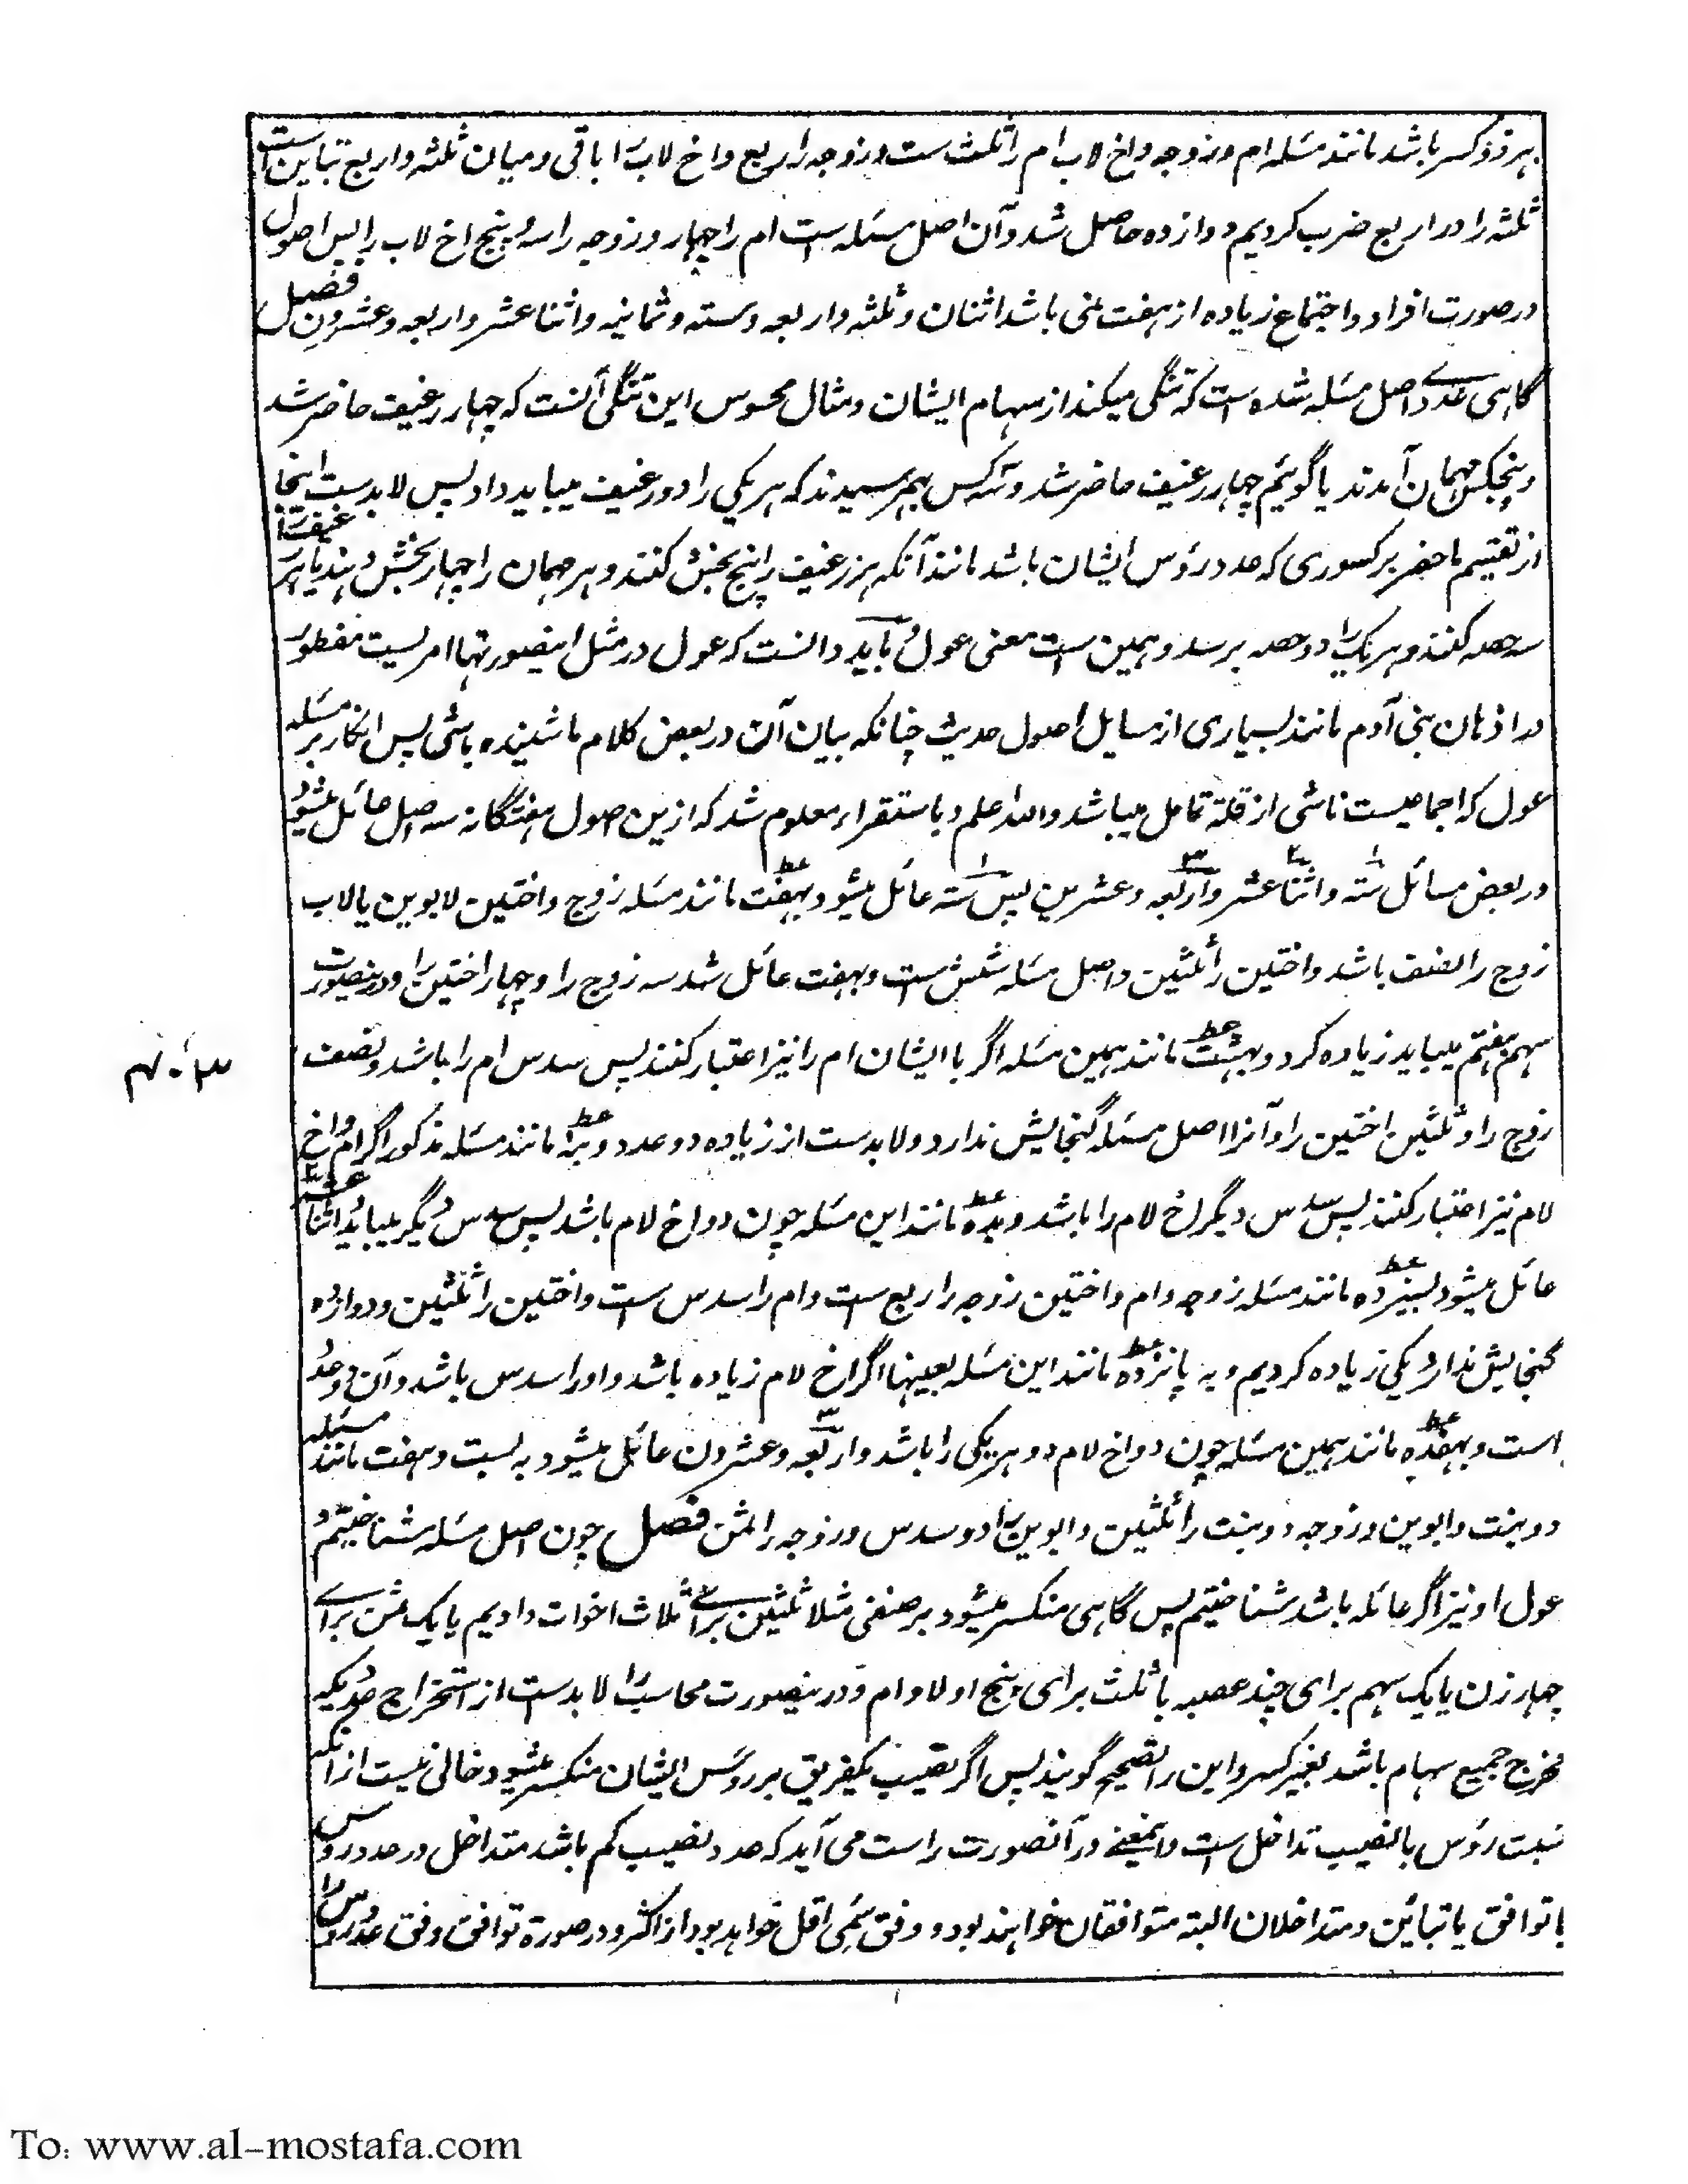 هر دو کسر باشد مانند مسئله ام و زوجه و اخ لاب ام را ثلث ست و زوجه را ربع و اخ لاب را باقی و میان ثلثه و اربع تباین است
ثلثه را در اربع ضرب کردیم دوازده حاصل شد و آن اصل مسئله است ام را چهار و زوجه را سه و پنج اخ لاب را پس اصول
در صورت افراد و اجتماع زیاده از هفت نمی باشد اثنان و ثلثه و اربعه و سته و ثمانیه و اثنا عشر و اربعه و عشرون فصل
گاهی عددے اصل مسئله شده است که تنگی میکند از سهام ایشان و مثال محسوس این تنگی آنست که چهار رغیف حاضر شد
و پنجکس مهمان آمدند یا گوئیم چهار رغیف حاضر شد و سه کس بهم رسیدند که هر یکی را دو رغیف میباید داد پس لابدست اینجا
از تقسیم ماحضر بر کسوری که عدد رؤس ایشان باشد مانند آنکه هر رغیف را پنج بخش کنند و هر مهمان را چهار بخش دهند یا هر رغیف را
سه حصه کنند و هر یک را دو حصه برسد و همین است معنی عول و باید دانست که عول در مثل اینصورتها امریست مفطور
در اذهان بنی آدم مانند بسیاری از مسایل اصول حدیث چنانکه بیان آن در بعض کلام ما شنیده باشی پس انکار بر مسئله
عول که اجماعیست ناشی از قلة تامل میباشد والله اعلم و باستقراء معلوم شد که ازین اصول هفتگانه سه اصل عائل میشود
در بعض مسائل سته و اثنا عشر و اربعه و عشرین پس سته عائل میشود بهفت مانند مسئله زوج و اختین لابوین یا لاب
زوج را نصف باشد و اختین را ثلثین و اصل مسئله شش ست و بهفت عائل شد سه زوج را و چهار اختین را و درینصورت
سهم هفتم میباید زیاده کرد و بهشت مانند همین مسئله اگر با ایشان ام را نیز اعتبار کنند پس سدس ام را باشد و نصف
زوج را و ثلثین اختین را و آنرا اصل مسئله گنجایش ندارد و لابدست از زیاده دو عدد و بنه مانند مسئله مذکور اگر ام و اخ
لام نیز اعتبار کنند پس سدس دیگر اخ لام را باشد و بده مانند این مسئله چون دو اخ لام باشد پس سدس دیگر میباید و اثنا عشر
عائل میشود بسیزده مانند مسئله زوجه و ام و اختین زوجه را ربع ست و ام را سدس ست و اختین را ثلثین و دوازده
گنجایش ندارد یکی زیاده کردیم و به پانزده مانند این مسئله بعینها اگر اخ لام زیاده باشد و او را سدس باشد و آن دو عدد
است و بهفده مانند همین مسئله چون دو اخ لام دو هر یکی را باشد و اربعه و عشرون عائل میشود به بست و هفت مانند مسئله
دو بنت و ابوین و زوجه دو بنت را ثلثین و ابوین را دو سدس و زوجه را ثمن فصل چون اصل مسئله شناختیم و
عول او نیز اگر عائله باشد شناختیم پس گاهی منکسر میشود بر صنفی مثلا ثلثین برای ثلاث اخوات دادیم یا یک ثمن برای
چهار زن یا یک سهم برای چند عصبه یا ثلث برای پنج اولاد ام و درینصورت محاسب را لابدست از استخراج عددیکه
مخرج جمیع سهام باشد بغیر کسر و این را تصحیح گویند پس اگر نصیب یکفریق بر رؤس ایشان منکسر میشود خالی نیست از آنکه
نسبت رؤس با نصیب تداخل ست و اینمعنے در آنصورت راست می آید که عدد نصیب کم باشد متداخل در عدد رؤس
یا توافق یا تبائین و متداخلان البته متوافقان خواهند بود و وفق سمی اقل خواهد بود از اکثر و در صورة توافق وفق عدد رؤس را
To: www.al-mostafa.com